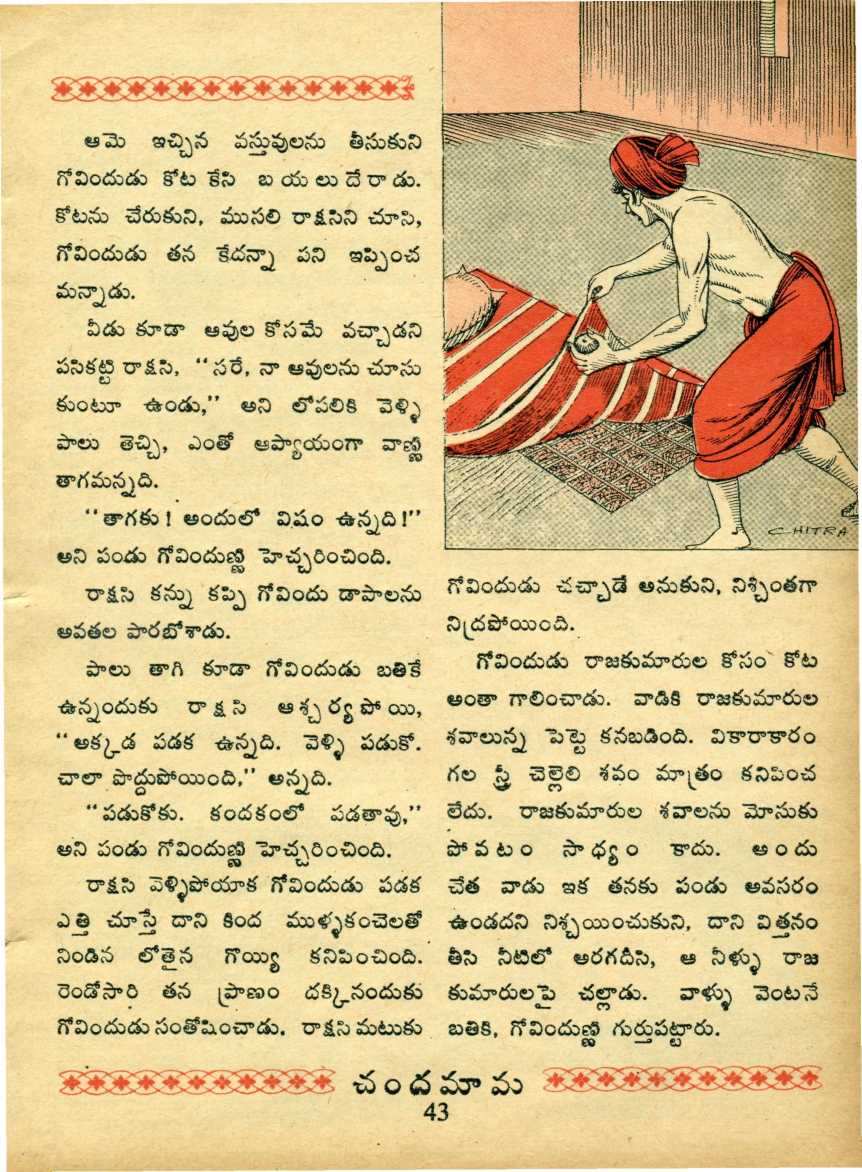 ఆమె ఇచ్చిన వస్తువులను తీసుకుని
గోవిందుడు కోట కేసి బయలుదేరాడు.
కోటను చేరుకుని, ముసలి రాక్షసిని చూసి,
గోవిందుడు తన కేదన్నా పని ఇప్పించ
మన్నాడు.
వీడు కూడా ఆవుల కోసమే వచ్చాడని
పసికట్టి రాక్షసి, “సరే, నా ఆవులను చూసు
కుంటూ ఉండు,” అని లోపలికి వెళ్ళి
పాలు తెచ్చి, ఎంతో ఆప్యాయంగా వాణ్ణి
తాగమన్నది.
“తాగకు! అందులో విషం ఉన్నది!”
అని పండు గోవిందుణ్ణి హెచ్చరించింది.
రాక్షసి కన్ను కప్పి గోవిందు డాపాలను
అవతల పారబోశాడు.
పాలు తాగి కూడా గోవిందుడు బతికే
ఉన్నందుకు రాక్షసి ఆశ్చర్యపోయి,
“అక్కడ పడక ఉన్నది. వెళ్ళి పడుకో.
చాలా పొద్దుపోయింది,” అన్నది.
“పడుకోకు. కందకంలో పడతావు,”
అని పండు గోవిందుణ్ణి హెచ్చరించింది.
రాక్షసి వెళ్ళిపోయాక గోవిందుడు పడక
ఎత్తి చూస్తే దాని కింద ముళ్ళకంచెలతో
నిండిన లోతైన గొయ్యి కనిపించింది.
రెండోసారి తన ప్రాణం దక్కినందుకు
గోవిందుడు సంతోషించాడు. రాక్షసి మటుకు
CHITRA
గోవిందుడు చచ్చాడే అనుకుని, నిశ్చింతగా
నిద్రపోయింది.
గోవిందుడు రాజకుమారుల కోసం కోట
అంతా గాలించాడు. వాడికి రాజకుమారుల
శవాలున్న పెట్టె కనబడింది. వికారాకారం
గల స్త్రీ చెల్లెలి శవం మాత్రం కనిపించ
లేదు. రాజకుమారుల శవాలను మోసుకు
పోవటం సాధ్యం కాదు. అందు
చేత వాడు ఇక తనకు పండు అవసరం
ఉండదని నిశ్చయించుకుని, దాని విత్తనం
తీసి నీటిలో అరగదీసి, ఆ నీళ్ళు రాజ
కుమారులపై చల్లాడు. వాళ్ళు వెంటనే
బతికి, గోవిందుణ్ణి గుర్తుపట్టారు.
చందమామ
43